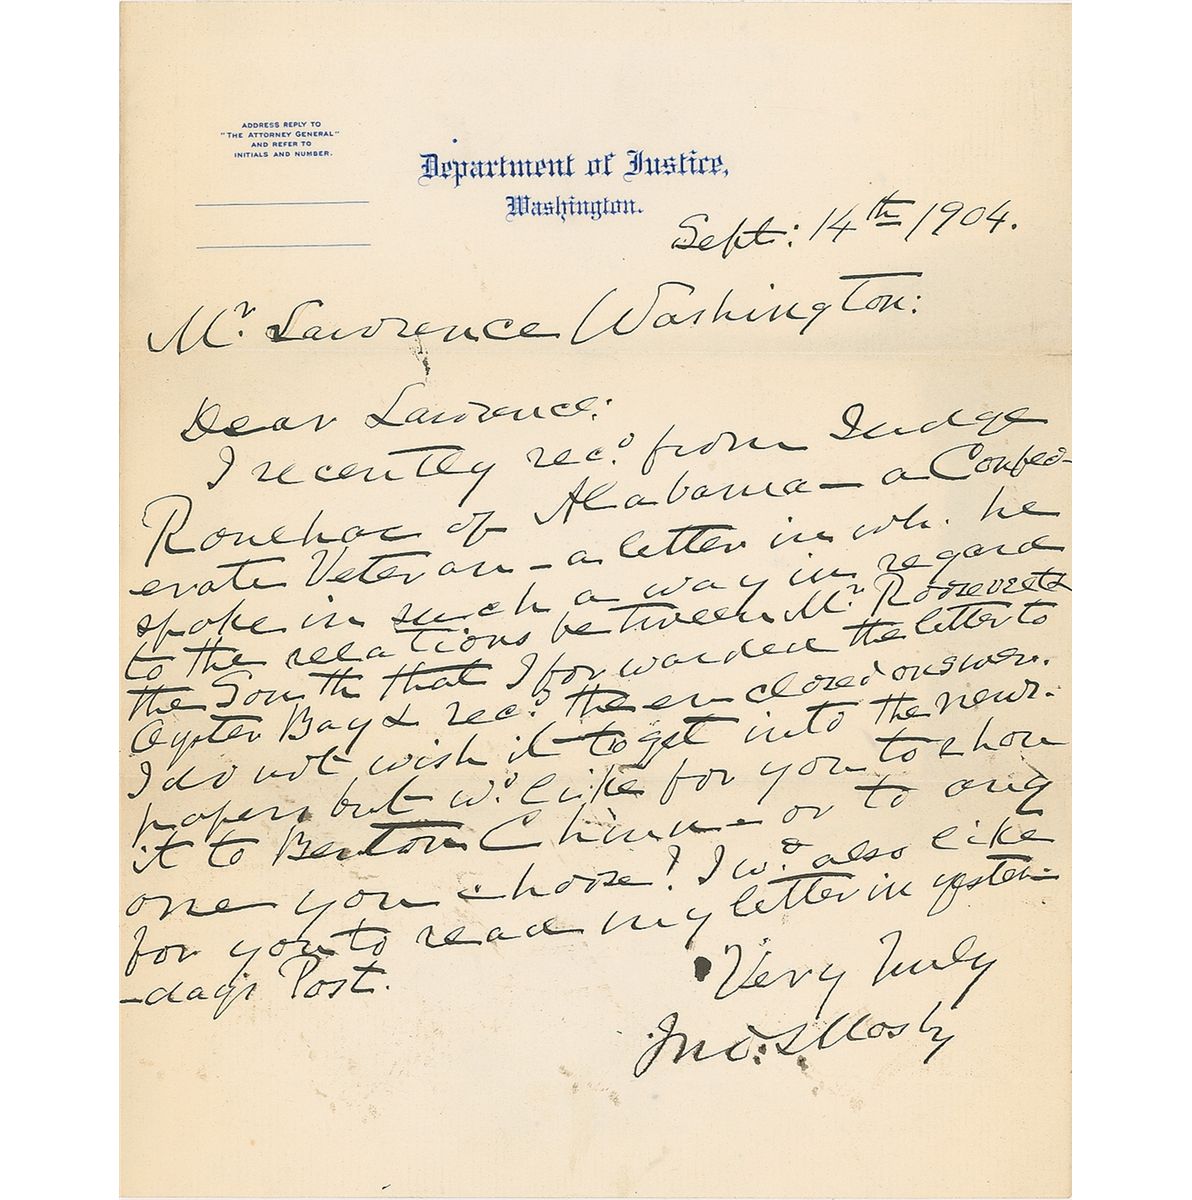 ADDRESS REPLY TO
"THE ATTORNEY GENERAL"
AND REFER TO
INITIALS AND NUMBER.
Department of Justice,
Washington.
Sept: 14th 1904.
Mr. Lawrence Washington:
Dear Lawrence:
I recently rec'd from Judge
Roulhac of Alabama – a Confed-
erate Veteran – a letter in wh. he
spoke in such a way in regard
to the relations between Mr. Roosevelt &
the South that I forwarded the letter to
Oyster Bay & rec'd the enclosed answer.
I do not wish it to get into the news-
papers but wd like for you to show
it to Benton Chinn – or to any
one you choose! I wd also like
for you to read my letter in yester-
-day's Post.
Very Truly
Jno: S Mosby